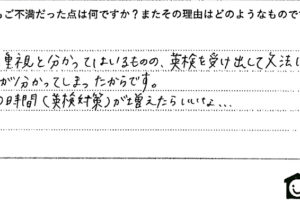 ご不満だった点は何ですか？またその理由はどのようなもので
重視と分かってはいるものの、英検を受け出して文法
が分かってしまったからです。
時間（英検対策）が増えたらいいな...